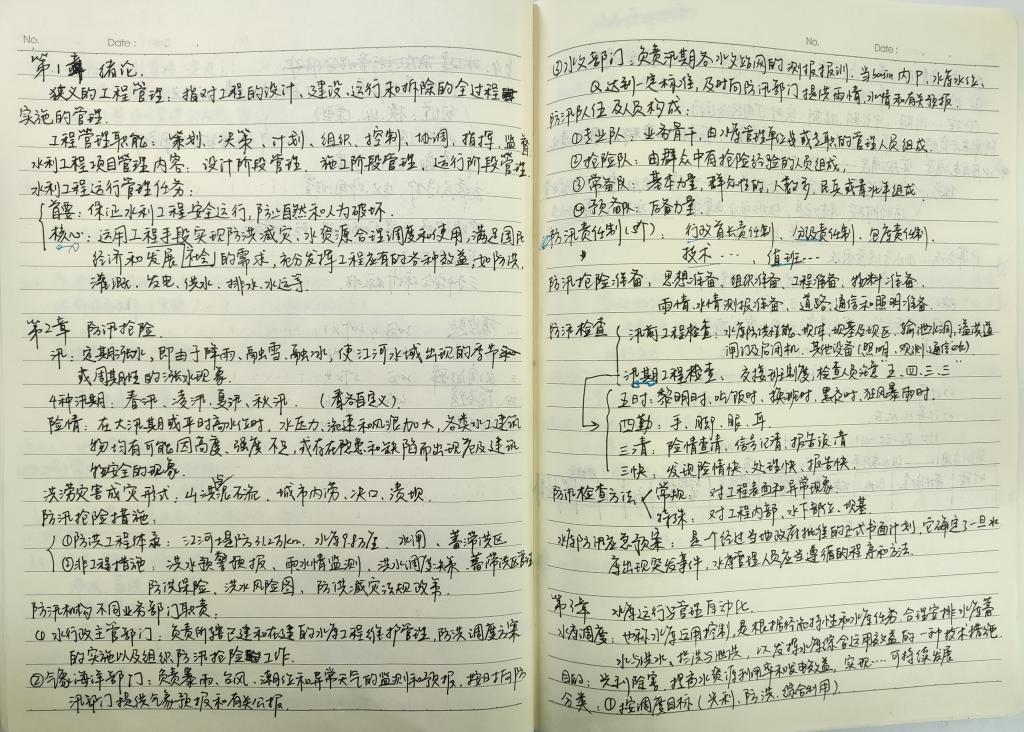 No.
Date:
第1章 绪论.
狭义的工程管理: 指对工程的设计、建设、运行和拆除的全过程
实施的管理.
工程管理职能: 策划、决策、计划、组织、控制、协调、指挥、监督
水利工程项目管理内容: 设计阶段管理. 施工阶段管理、运行阶段管理.
水利工程运行管理任务:
首要: 保证水利工程安全运行, 防止自然和人为破坏.
核心: 运用工程手段实现防洪减灾、水资源合理调度和使用, 满足国民
经济和发展社会的需求, 充分发挥工程应有的各种效益, 如防洪、
灌溉、发电、供水、排水、水运等.
第2章 防汛抢险
汛: 定期涨水, 即由于降雨、融雪、融冰, 使江河水域出现的季节
或周期性的涨水现象.
4种汛期: 春汛、凌汛、夏汛、秋汛. (看各自定义).
险情: 在大汛期或平时高水位时, 水压力、流速和风浪加大, 各类水工建筑
物均有可能因高度、强度不足, 或存在隐患和缺陷而出现危及建筑
物安全的现象.
洪涝灾害成灾形式: 山洪泥石流、城市内涝、决口、溃坝.
防汛抢险措施:
①防洪工程体系: 江河堤防31.2万km、水库9.8万座、水闸、蓄滞洪区
②非工程措施: 洪水预警预报、雨水情监测、洪水调度决策、蓄滞洪区
防洪保险、洪水风险图、防洪减灾法规政策.
防汛机构不同业务部门职责.
①水行政主管部门: 负责所辖已建和在建的水库工程维护管理, 防洪调度方案
的实施以及组织防汛抢险工作.
②气象海洋部门: 负责暴雨、台风、潮位和异常天气的监测和预报, 按时向防
汛部门提供气象预报和有关公报.
No.
Date:
③水文部门: 负责汛期各水文站网的测报报训. 当basin内P、水库水位、
Q达到一定标准, 及时向防汛部门提供雨情、水情和有关预报
防汛队伍及人员构成:
①专业队: 业务骨干, 由水库管理单位的管理人员组成
②抢险队: 由群众中有抢险经验的人员组成,
③常备队: 基本力量, 群众性的, 人数多, 民兵或青壮年组成.
④预备队: 后备力量
防汛责任制(5个): 行政首长责任制、分级责任制、包库责任制.
技术…、值班…
防汛抢险准备. 思想准备、组织准备、工程准备、物料准备.
雨情、水情测报准备、道路、通信和照明准备.
防汛检查
汛前工程检查: 水库防洪性能、坝体、坝基及坝区、输泄水洞、溢洪道
闸门及启闭机、其他设备(照明、观测、通信)
汛期工程检查. 交接班制度, 检查人员注意"五、四、三、三"
五时: 黎明时、吃饭时、换班时、黑夜时、狂风暴雨时.
四勤: 手、脚、眼、耳.
三清: 险情查清、信号记清、报告说清
三快: 发现险情快、处理快、报告快.
防汛检查方法
常规: 对工程表面和异常现象.
特殊: 对工程内部、水下部位、坝基.
水库防洪应急预案: 是个经过当地政府批准的正式书面计划, 它确定了一旦水
库出现突发事件, 水库管理人员应当遵循的程序和方法.
第3章 水库运行与管理自动化.
水库调度: 也称水库运用控制, 是根据径流特性和水库任务, 合理安排水库蓄
水与供水、拦洪与泄洪, 以发挥水库综合运用效益的一种技术措施.
目的: 兴利除害, 提高水资源利用率和发电效益, 实现…可持续发展
分类: ①按调度目标(兴利、防洪、综合利用)